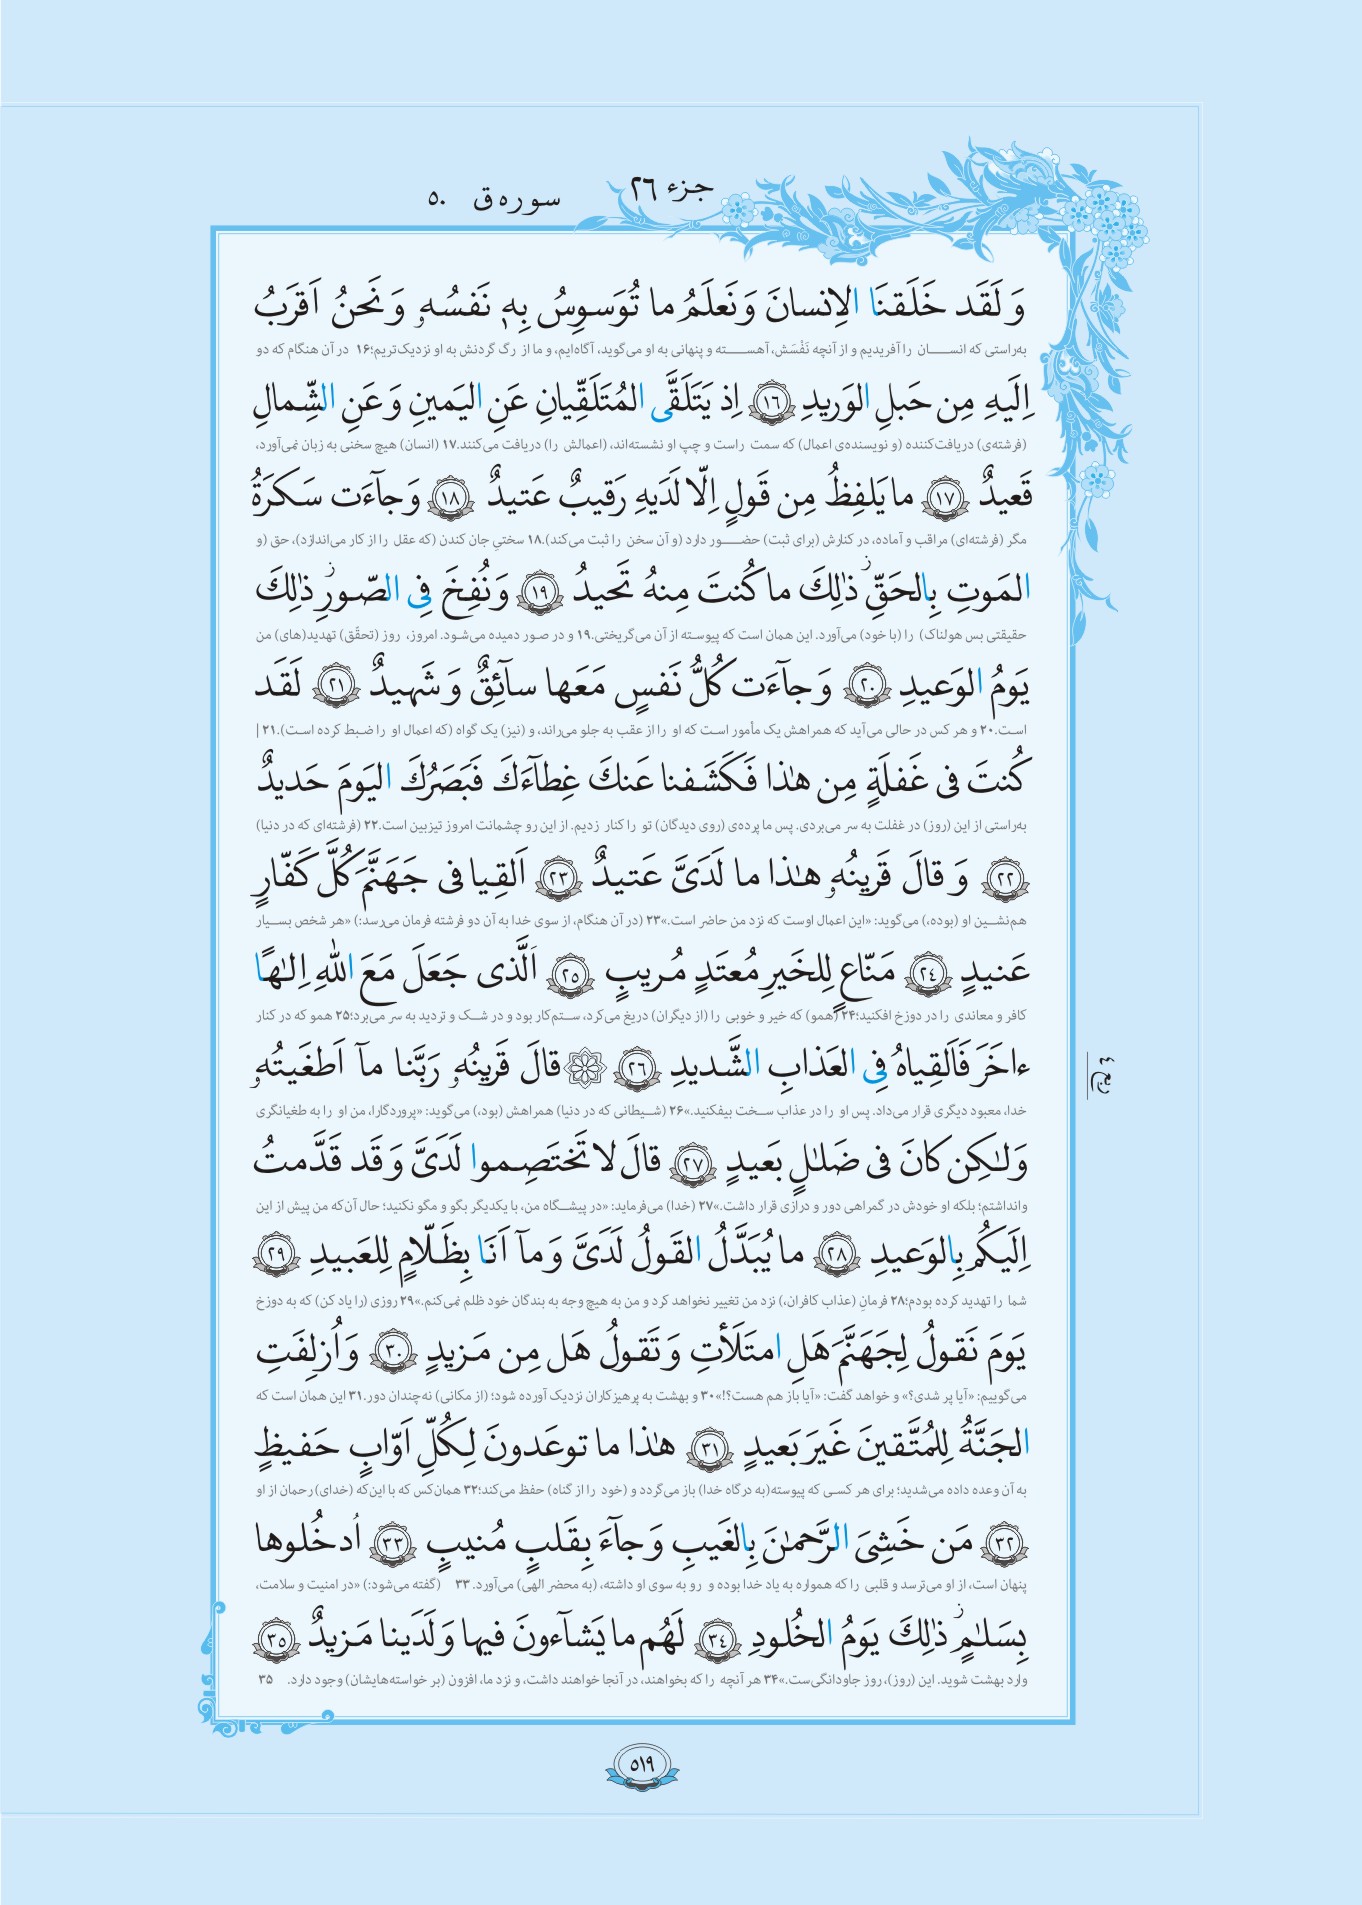 جزء ٢٦
سوره ق ٥٠
وَ لَقَد خَلَقنَا الاِنسانَ وَ نَعلَمُ ما تُوَسوِسُ بِهٖ نَفسُهٗ وَ نَحنُ اَقرَبُ
به‌راستی که انسان را آفریدیم و از آنچه نَفْسَش، آهسته و پنهانی به او می‌گوید، آگاه‌ایم، و ما از رگ گردنش به او نزدیک‌تریم؛۱۶ در آن هنگام که دو
اِلَيهِ مِن حَبلِ الوَريدِ ﴿١٦﴾ اِذ يَتَلَقَّى المُتَلَقِّيانِ عَنِ اليَمينِ وَ عَنِ الشِّمالِ
(فرشته‌ی) دریافت‌کننده (و نویسنده‌ی اعمال) که سمت راست و چپ او نشسته‌اند، (اعمالش را) دریافت می‌کنند.۱۷ (انسان) هیچ سخنی به زبان نمی‌آورد،
قَعيدٌ ﴿١٧﴾ ما يَلفِظُ مِن قَولٍ اِلّا لَدَيهِ رَقيبٌ عَتيدٌ ﴿١٨﴾ وَ جآءَت سَكرَةُ
مگر (فرشته‌ای) مراقب و آماده، در کنارش (برای ثبت) حضور دارد (و آن سخن را ثبت می‌کند).۱۸ سختیِ جان کندن (که عقل را از کار می‌اندازد)، حق (و
المَوتِ بِالحَقِّ ز ذٰلِكَ ما كُنتَ مِنهُ تَحيدُ ﴿١٩﴾ وَ نُفِخَ فِى الصّورِ ز ذٰلِكَ
حقیقتی بس هولناک) را (با خود) می‌آورد. این همان است که پیوسته از آن می‌گریختی.۱۹ و در صور دمیده می‌شود. امروز، روز (تحقّق) تهدید(های) من
يَومُ الوَعيدِ ﴿٢٠﴾ وَ جآءَت كُلُّ نَفسٍ مَعَها سآئِقٌ وَ شَهيدٌ ﴿٢١﴾ لَقَد
است.۲۰ و هر کس در حالی می‌آید که همراهش یک مأمور است که او را از عقب به جلو می‌راند، و (نیز) یک گواه (که اعمال او را ضبط کرده است).۲۱ |
كُنتَ فى غَفلَةٍ مِن هٰذا فَكَشَفنا عَنكَ غِطآءَكَ فَبَصَرُكَ اليَومَ حَديدٌ
به‌راستی از این (روز) در غفلت به سر می‌بردی. پس ما پرده‌ی (روی دیدگان) تو را کنار زدیم. از این رو چشمانت امروز تیزبین است.۲۲ (فرشته‌ای که در دنیا)
﴿٢٢﴾ وَ قالَ قَرينُهٗ هٰذا ما لَدَىَّ عَتيدٌ ﴿٢٣﴾ اَلقِيا فى جَهَنَّمَ كُلَّ كَفّارٍ
هم‌نشین او (بوده،) می‌گوید: «این اعمال اوست که نزد من حاضر است.»۲۳ (در آن هنگام، از سوی خدا به آن دو فرشته فرمان می‌رسد:) «هر شخص بسیار
عَنيدٍ ﴿٢٤﴾ مَنّاعٍ لِلخَيرِ مُعتَدٍ مُريبٍ ﴿٢٥﴾ اَلَّذى جَعَلَ مَعَ اللّٰهِ اِلٰهًا
کافر و معاندی را در دوزخ افکنید؛۲۴ (همو) که خیر و خوبی را (از دیگران) دریغ می‌کرد، ستم‌کار بود و در شک و تردید به سر می‌برد؛۲۵ همو که در کنار
ءاخَرَ فَاَلقِياهُ فِى العَذابِ الشَّديدِ ﴿٢٦﴾ قالَ قَرينُهٗ رَبَّنا مآ اَطغَيتُهٗ
خدا، معبود دیگری قرار می‌داد. پس او را در عذاب سخت بیفکنید.»۲۶ (شیطانی که در دنیا) همراهش (بود،) می‌گوید: «پروردگارا، من او را به طغیانگری
وَ لٰكِن كانَ فى ضَلٰلٍ بَعيدٍ ﴿٢٧﴾ قالَ لا تَختَصِموا لَدَىَّ وَ قَد قَدَّمتُ
وانداشتم؛ بلکه او خودش در گمراهی دور و درازی قرار داشت.»۲۷ (خدا) می‌فرماید: «در پیشگاه من، با یکدیگر بگو و مگو نکنید؛ حال آن‌که من پیش از این
اِلَيكُم بِالوَعيدِ ﴿٢٨﴾ ما يُبَدَّلُ القَولُ لَدَىَّ وَ مآ اَنَا بِظَلّامٍ لِلعَبيدِ ﴿٢٩﴾
شما را تهدید کرده بودم؛۲۸ فرمانِ (عذاب کافران،) نزد من تغییر نخواهد کرد و من به هیچ وجه به بندگان خود ظلم نمی‌کنم.»۲۹ روزی (را یاد کن) که به دوزخ
يَومَ نَقولُ لِجَهَنَّمَ هَلِ امتَلَأتِ وَ تَقولُ هَل مِن مَزيدٍ ﴿٣٠﴾ وَ اُزلِفَتِ
می‌گوییم: «آیا پر شدی؟» و خواهد گفت: «آیا باز هم هست؟!»۳۰ و بهشت به پرهیزکاران نزدیک آورده شود؛ (از مکانی) نه‌چندان دور.۳۱ این همان است که
الجَنَّةُ لِلمُتَّقينَ غَيرَ بَعيدٍ ﴿٣١﴾ هٰذا ما توعَدونَ لِكُلِّ اَوّابٍ حَفيظٍ
به آن وعده داده می‌شدید؛ برای هر کسی که پیوسته(به درگاه خدا) باز می‌گردد و (خود را از گناه) حفظ می‌کند؛۳۲ همان‌کس که با این‌که (خدای) رحمان از او
﴿٣٢﴾ مَن خَشِىَ الرَّحمٰنَ بِالغَيبِ وَ جآءَ بِقَلبٍ مُنيبٍ ﴿٣٣﴾ اُدخُلوها
پنهان است، از او می‌ترسد و قلبی را که همواره به یاد خدا بوده و رو به سوی او داشته، (به محضر الهی) می‌آورد. ۳۳ (گفته می‌شود:) «در امنیت و سلامت،
بِسَلٰمٍ ز ذٰلِكَ يَومُ الخُلودِ ﴿٣٤﴾ لَهُم ما يَشآءونَ فيها وَ لَدَينا مَزيدٌ ﴿٣٥﴾
وارد بهشت شوید. این (روز)، روز جاودانگی‌ست.»۳۴ هر آنچه را که بخواهند، در آنجا خواهند داشت، و نزد ما، افزون (بر خواسته‌هایشان) وجود دارد. ۳۵
ربع ٤
٥١٩